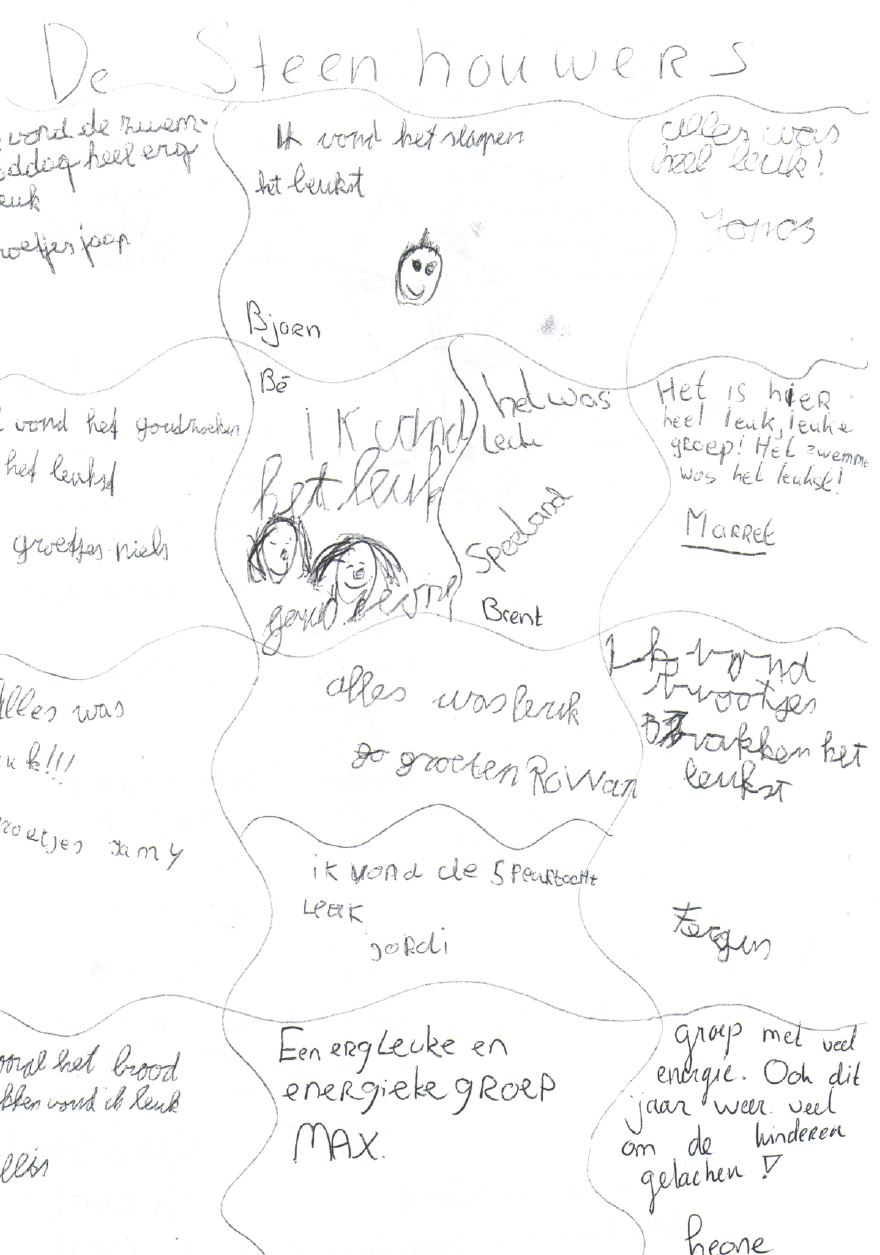 De Steenhouwers
vond de zwem-
ddag heel erg
euk
roetjes jaap
Ik vond het slapen
het leukst
Bjorn
alles was
heel leuk!
Jonas
vond het goudzoeken
het leuksd
groetjes niels
Bé
ik vond
het leuk
het was
Leuk
Speeland
Brent
Het is hier
heel leuk, leuke
groep! Het zwemme
was het leukst!
Marret
Alles was
uk!!!
roetjes Jamy
alles was leuk
groeten Rowan
Ik vond
broodjes
Bakken het
leukst
Fergus
ik vond de speurtocht
Leuk
jordi
ooral het brood
kken vond ik leuk
ellis
Een erg Leuke en
energieke groep
MAX.
groep met veel
energie. Ook dit
jaar weer veel
om de kinderen
gelachen!